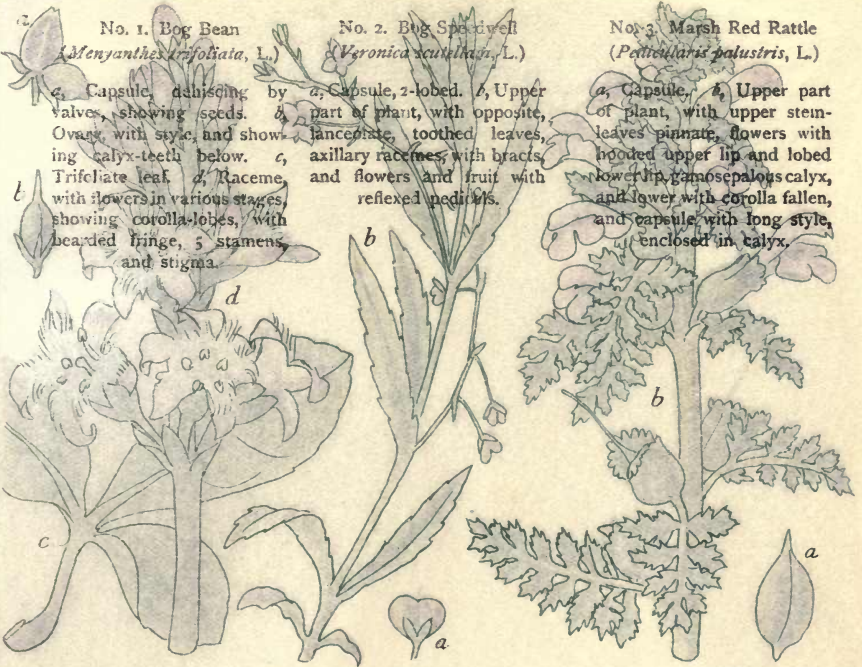 No. 1. Bog Bean
(Menyanthes trifoliata, L.)
a, Capsule, dehiscing by
valves, showing seeds. b,
Ovary, with style, and show-
ing calyx-teeth below. c,
Trifoliate leaf. d, Raceme,
with flowers in various stages,
showing corolla-lobes, with
bearded fringe, 5 stamens,
and stigma.
No. 2. Bog Speedwell
(Veronica scutellata, L.)
a, Capsule, 2-lobed. b, Upper
part of plant, with opposite,
lanceolate, toothed leaves,
axillary racemes, with bracts,
and flowers and fruit with
reflexed pedicels.
No. 3. Marsh Red Rattle
(Pedicularis palustris, L.)
a, Capsule. b, Upper part
of plant, with upper stem-
leaves pinnate, flowers with
hooded upper lip and lobed
lower lip, gamosepalous calyx,
and lower with corolla fallen,
and capsule with long style,
enclosed in calyx.
a
b
d
c
b
a
b
a